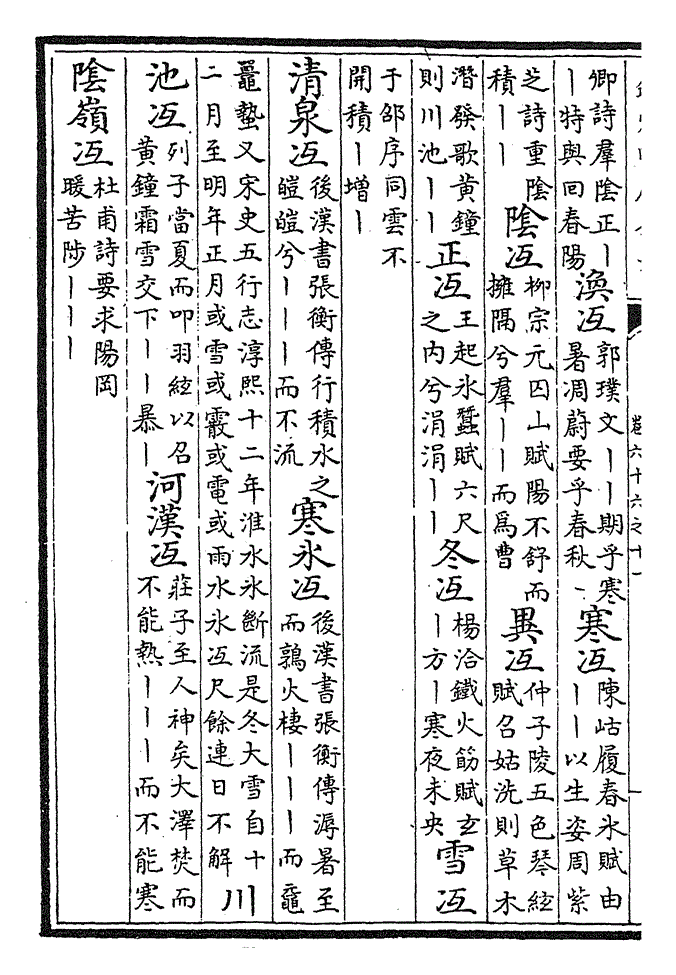 卷六十六之十一
卿詩羣陰正丨丨特與回春陽 渙冱 郭璞文丨丨期乎寒暑凋蔚要乎春秋 寒冱 陳岵履春氷賦由丨丨以生姿周紫
芝詩重陰積丨丨 陰冱 柳宗元囚山賦陽不舒而擁隔兮羣丨丨而爲曹 異冱 仲子陵五色琴絃賦召姑洗則草木
潛發歌黃鐘則川池丨丨 正冱 王起氷蠶賦六尺之內兮涓涓丨丨 冬冱 楊洽鐵火筯賦玄丨方丨寒夜未央 雪冱
于邵序同雲不開積丨增丨
清泉冱 後漢書張衡傳行積水之皚皚兮丨丨丨而不流 寒氷冱 後漢書張衡傳溽暑至而鶉火棲丨丨丨而黿
鼉蟄又宋史五行志淳熙十二年淮水氷斷流是冬大雪自十二月至明年正月或雪或霰或電或雨水氷冱尺餘連日不解 川
池冱 列子當夏而叩羽絃以召黃鐘霜雪交下丨丨暴丨 河漢冱 莊子至人神矣大澤焚而不能熱丨丨丨而不能寒
陰嶺冱 杜甫詩要求陽岡暖苦陟丨丨丨